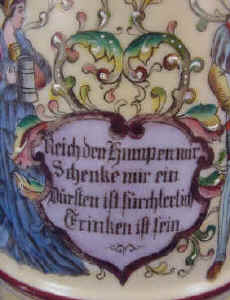 Reich den Humpen nur
Schenke mir ein
Dürsten ist fürchterlich
Trinken ist fein